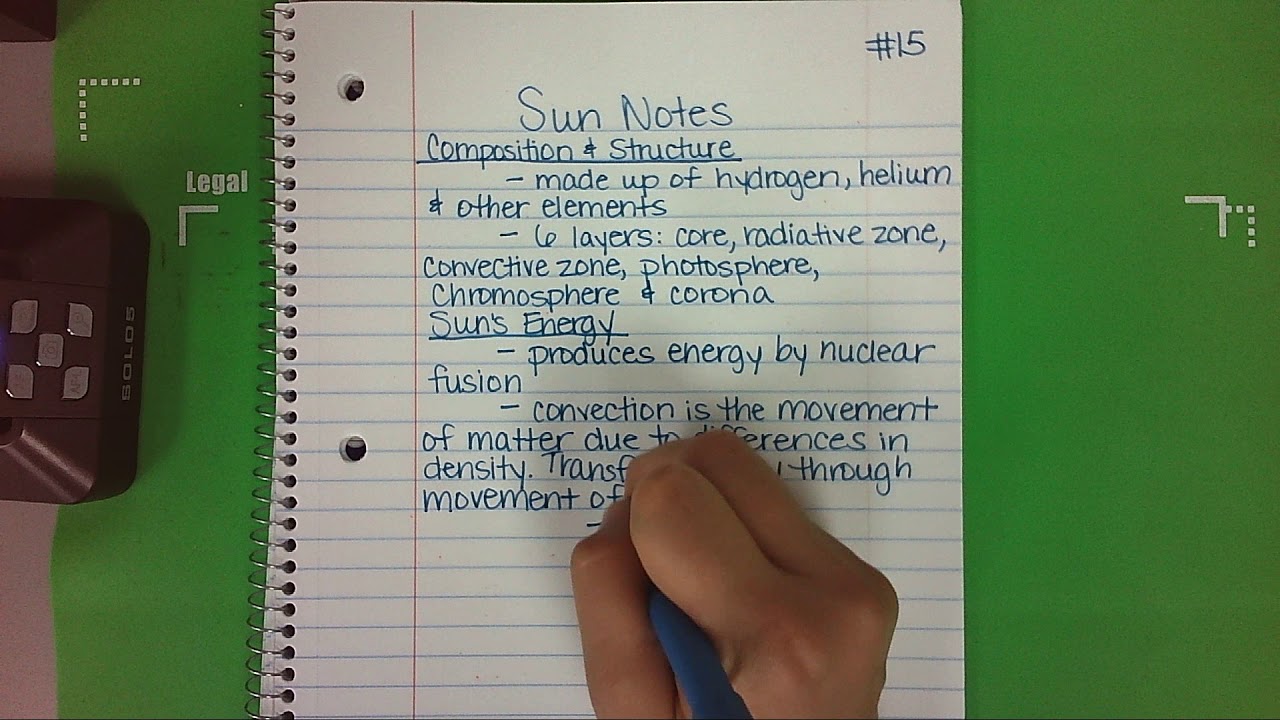 #15
Sun Notes
Composition & Structure
- made up of hydrogen, helium
& other elements
- 6 layers: core, radiative zone,
convective zone, photosphere,
Chromosphere & corona
Sun's Energy
- produces energy by nuclear
fusion
- convection is the movement
of matter due to differences in
density. through
movement of
-
Legal
SOLO5